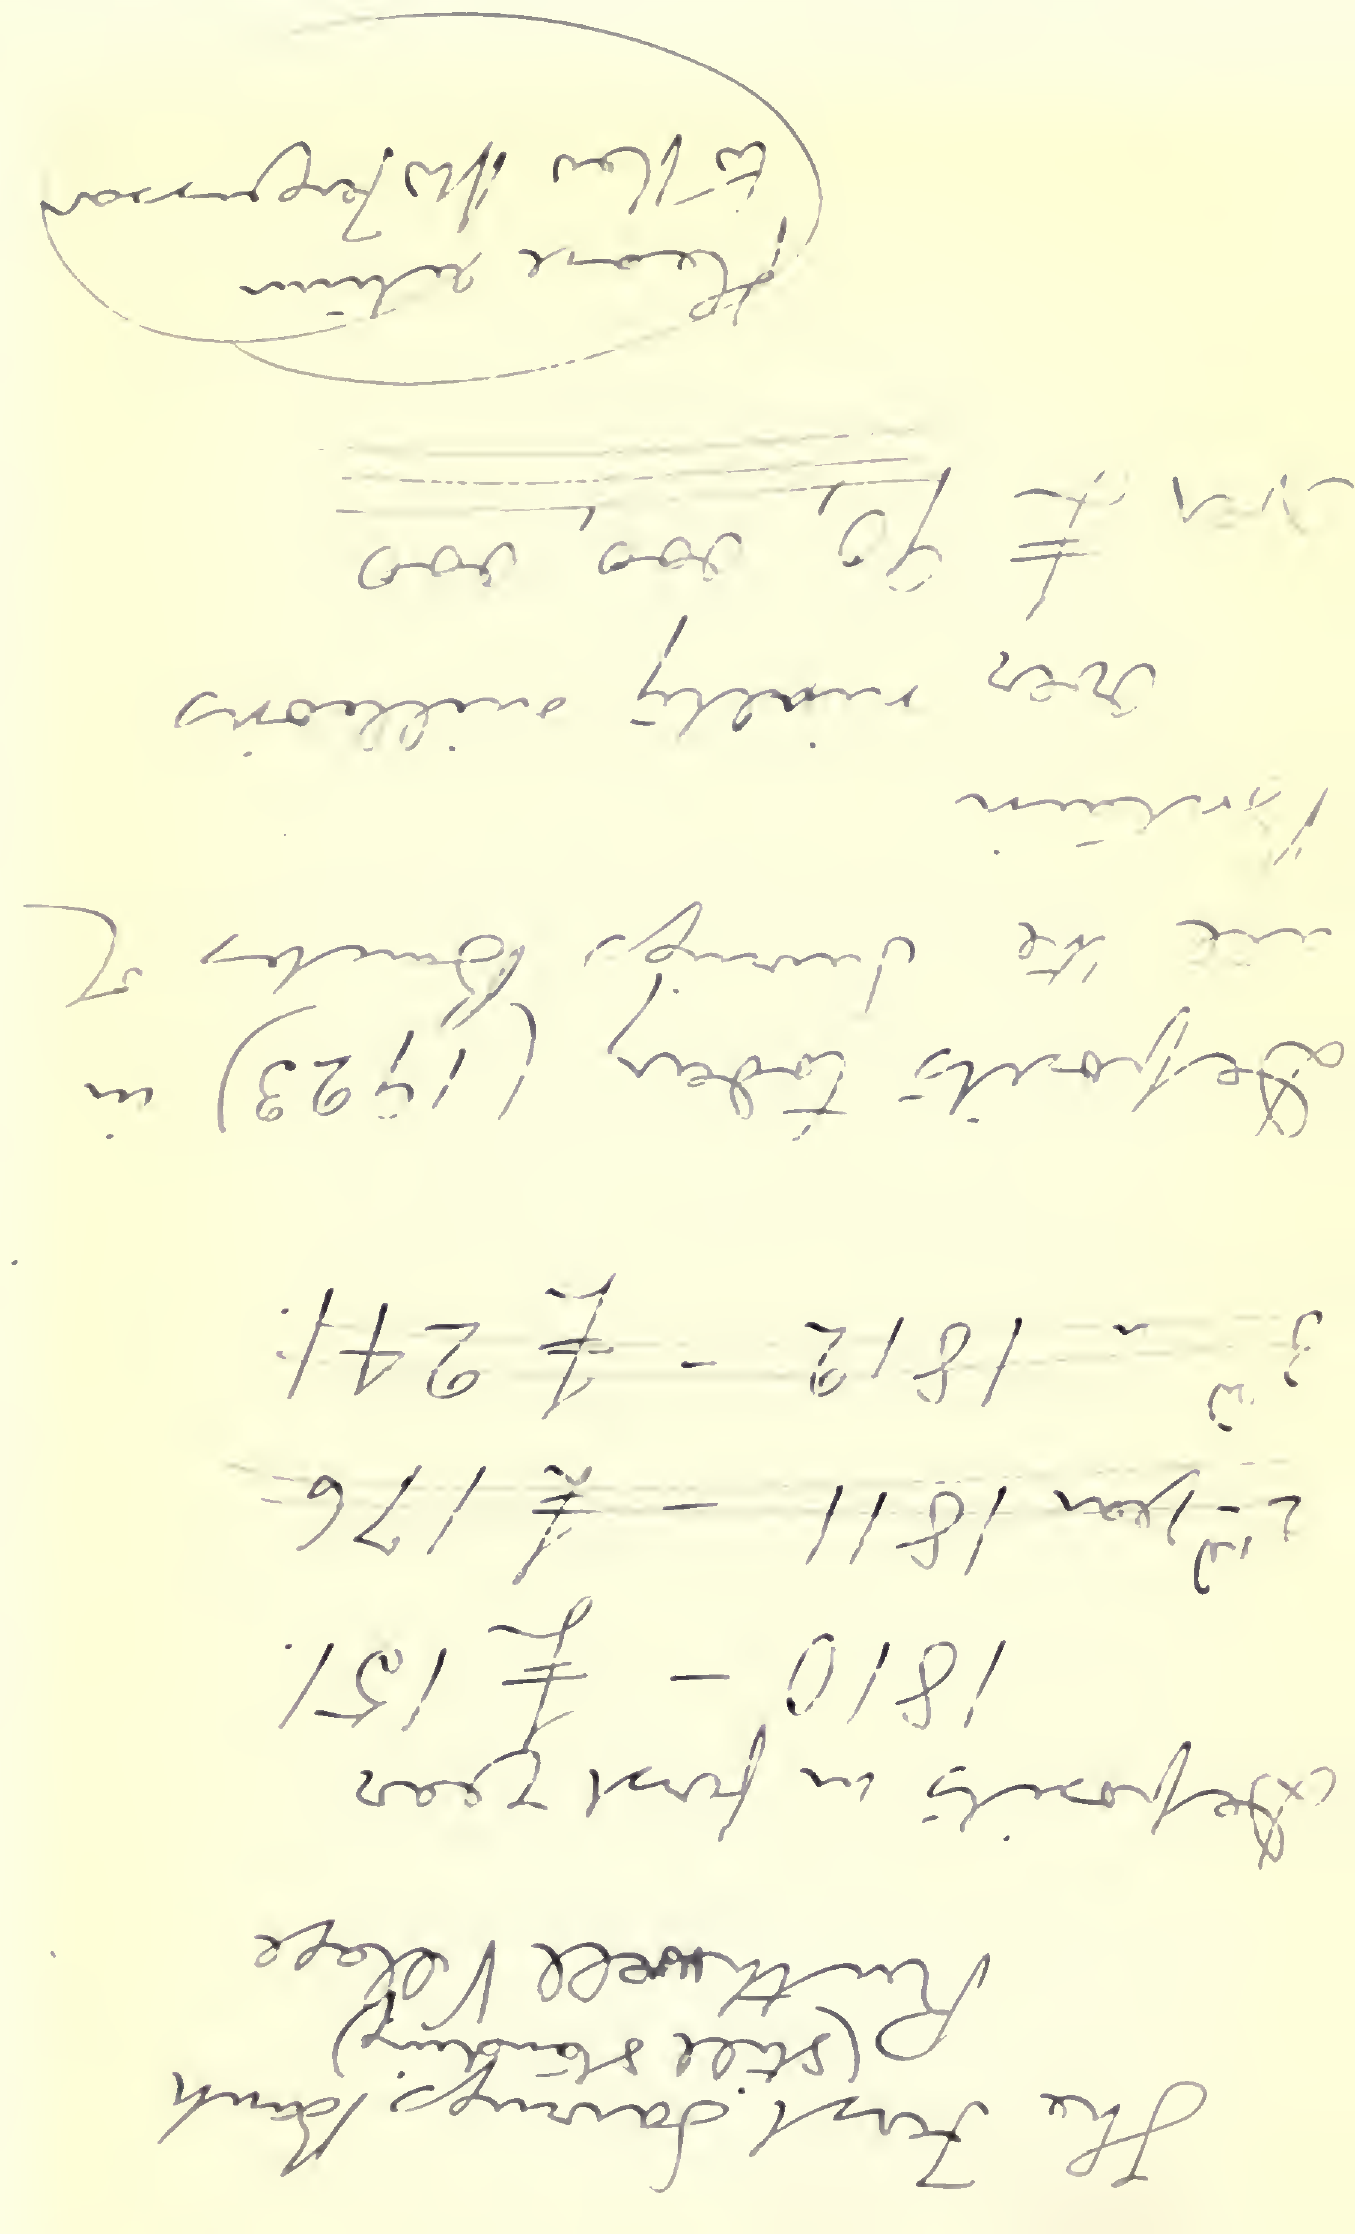 The First Savings Bank
(still standing)
Ruthwell Village
Deposits in first year
1810 - £151.
2nd year 1811 - £176
3rd " 1812 - £241.
Deposits today (1923) in
all the Savings Banks of
Britain
over ninety millions
over £90,000,000
Please return
to Rev Mr Ferguson